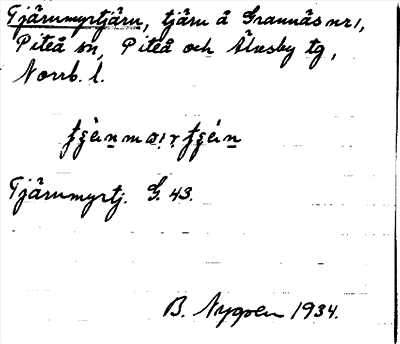 Tjärnmyrtjärn, tjärn å Grannäs nr 1,
Piteå sn, Piteå och Älvsby tg,
Norrb. l.
Tjärnmyrtj. G. 43.
B. Nygren 1934.